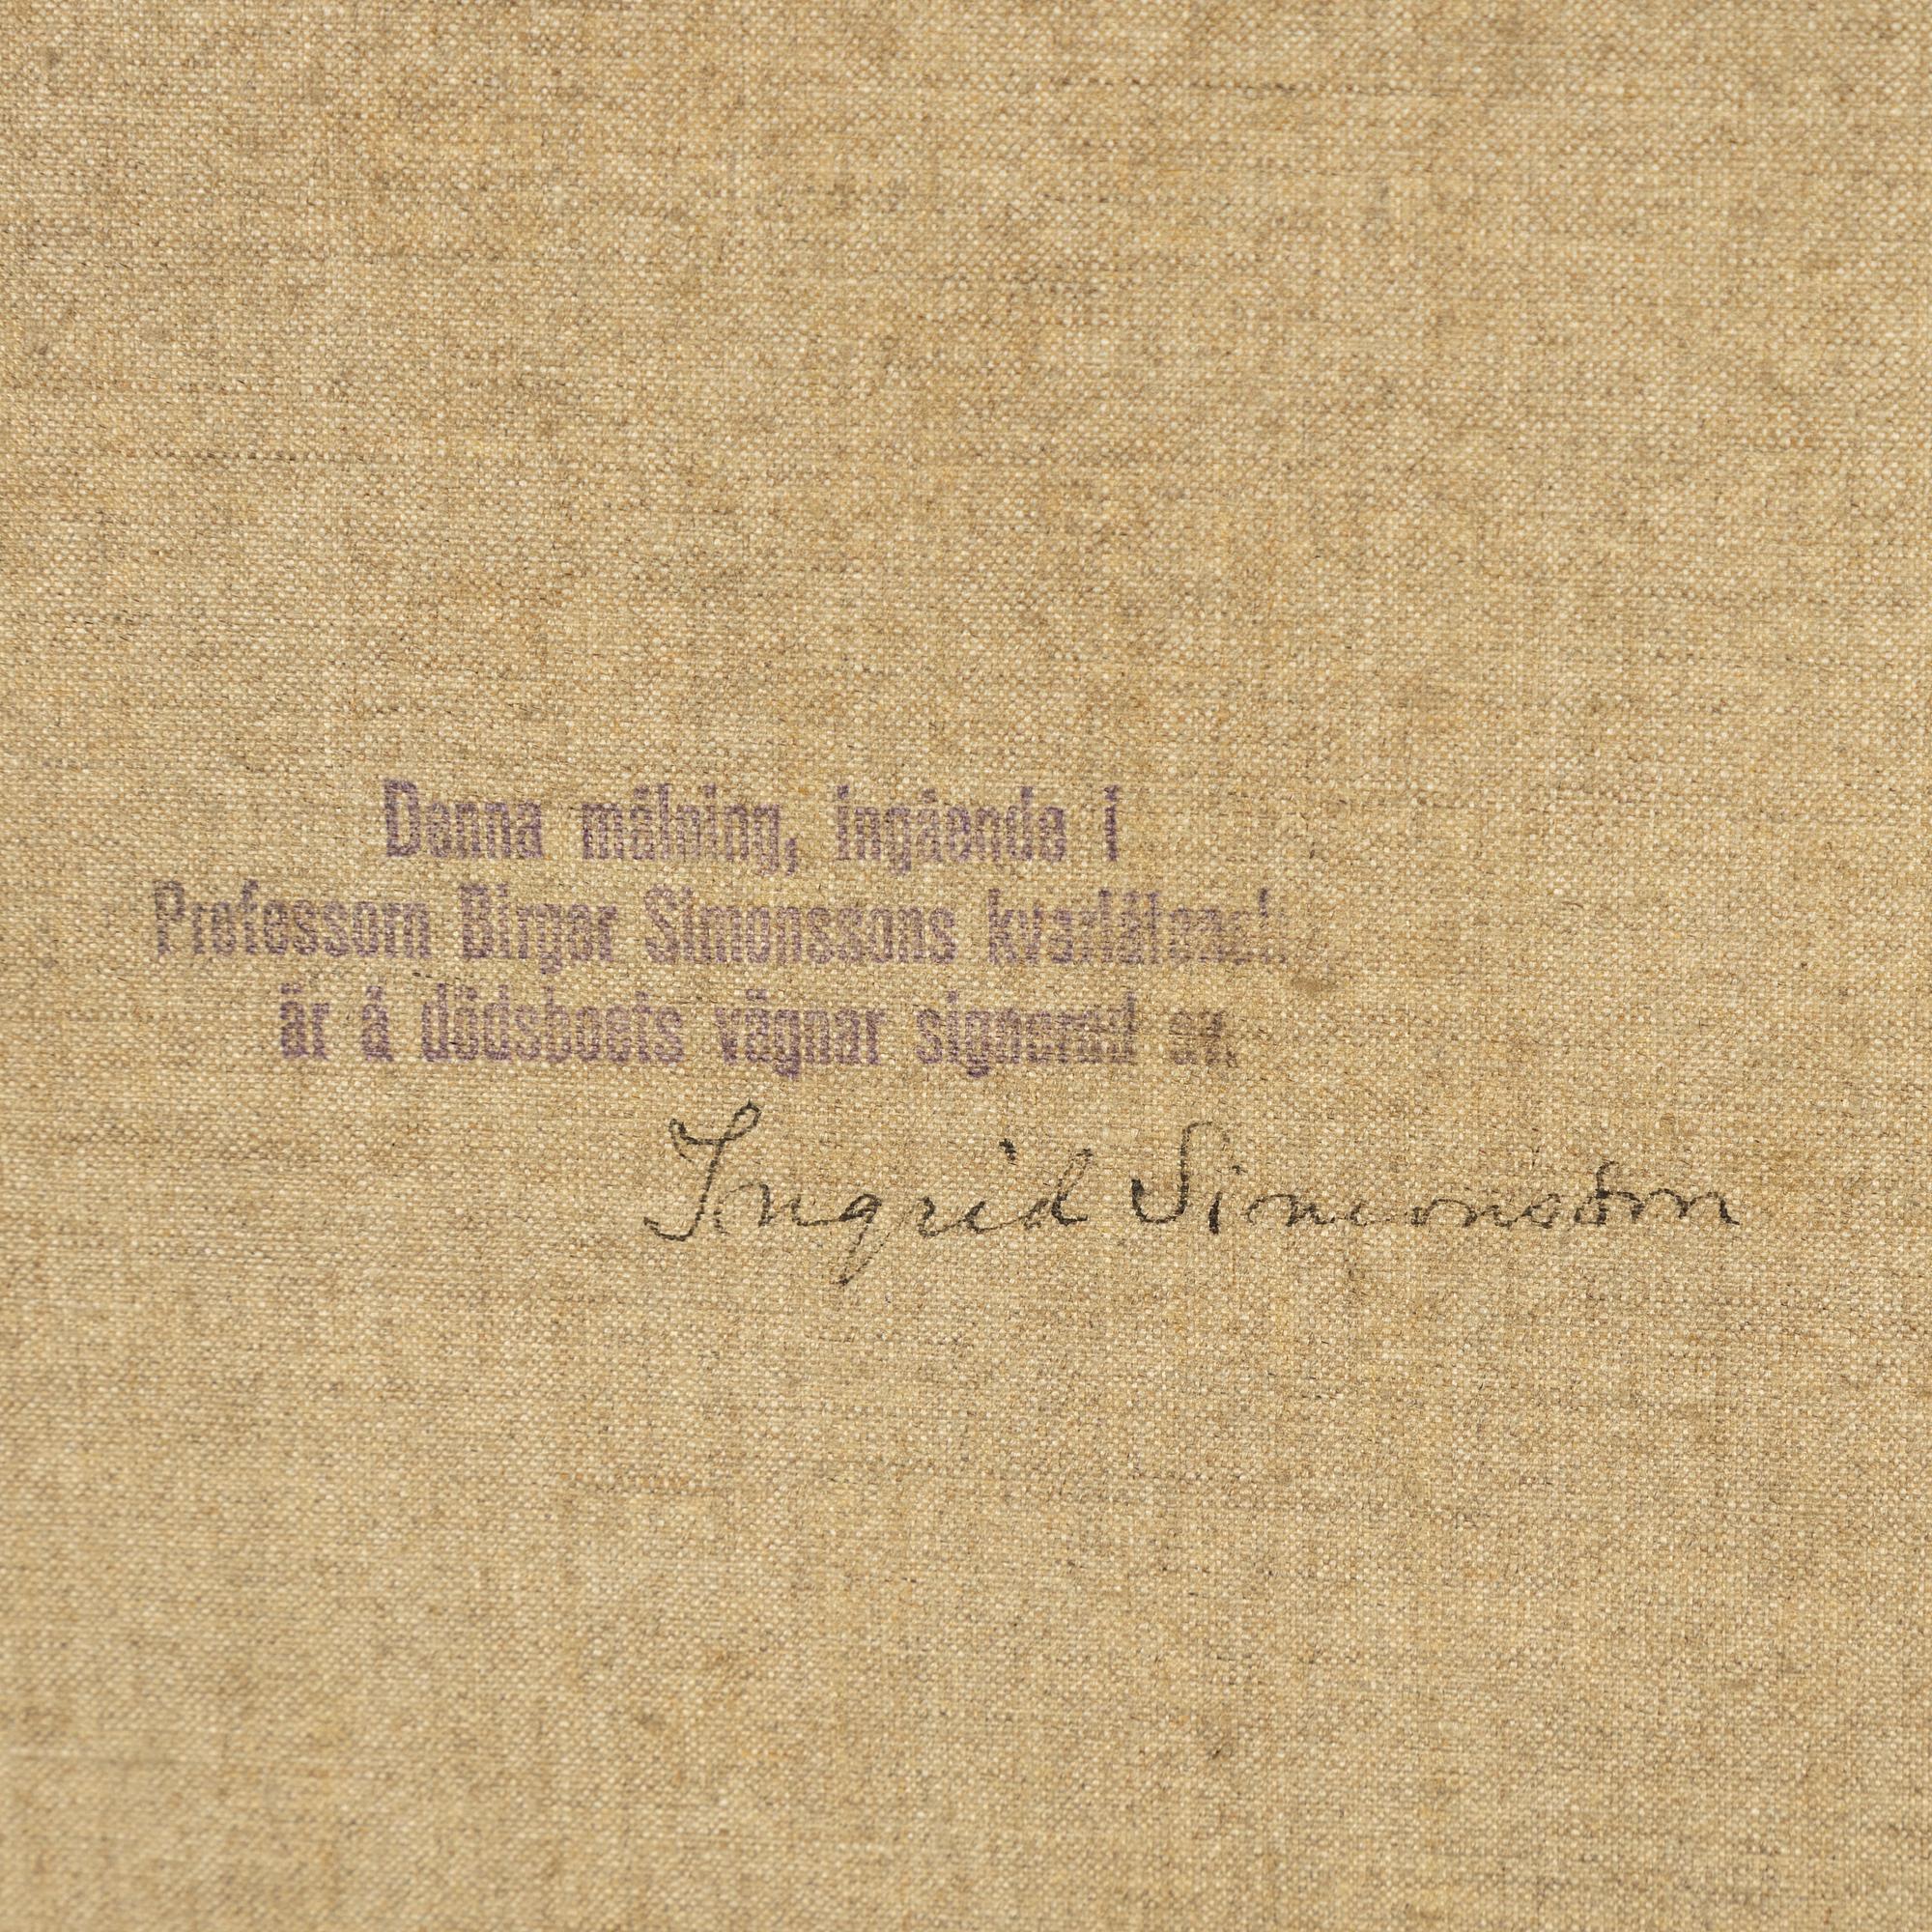 Denna målning, ingående i
Professorn Birger Simonssons kvarlåtenskap
är å dödsboets vägnar signerad av
Ingrid Simonsson